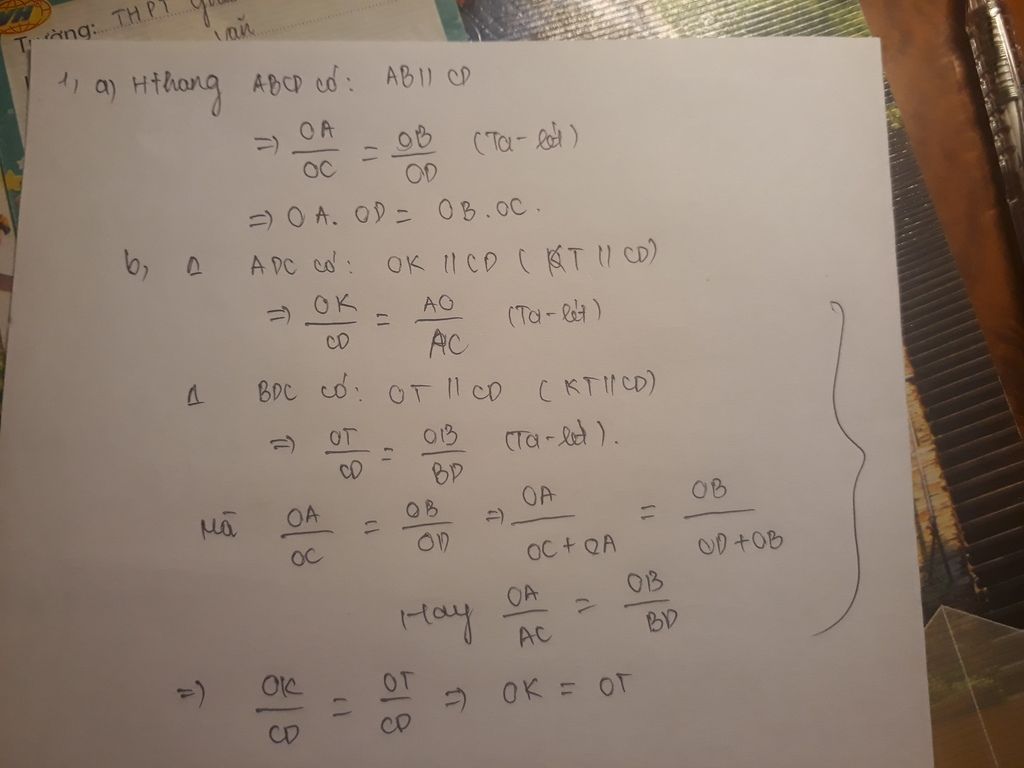 Trường: THPT
văn
1, a) Hthang ABCD có: AB // CD
=> OA/OC = OB/OD (Ta-lét)
=> OA. OD = OB.OC.
b, Δ ADC có: OK // CD (KT // CD)
=> OK/CD = AO/AC (Ta-lét)
Δ BDC có: OT // CD (KT // CD)
=> OT/CD = OB/BD (Ta-lét).
Mà OA/OC = OB/OD => OA/OC+OA = OB/OD+OB
Hay OA/AC = OB/BD
=> OK/CD = OT/CD => OK = OT